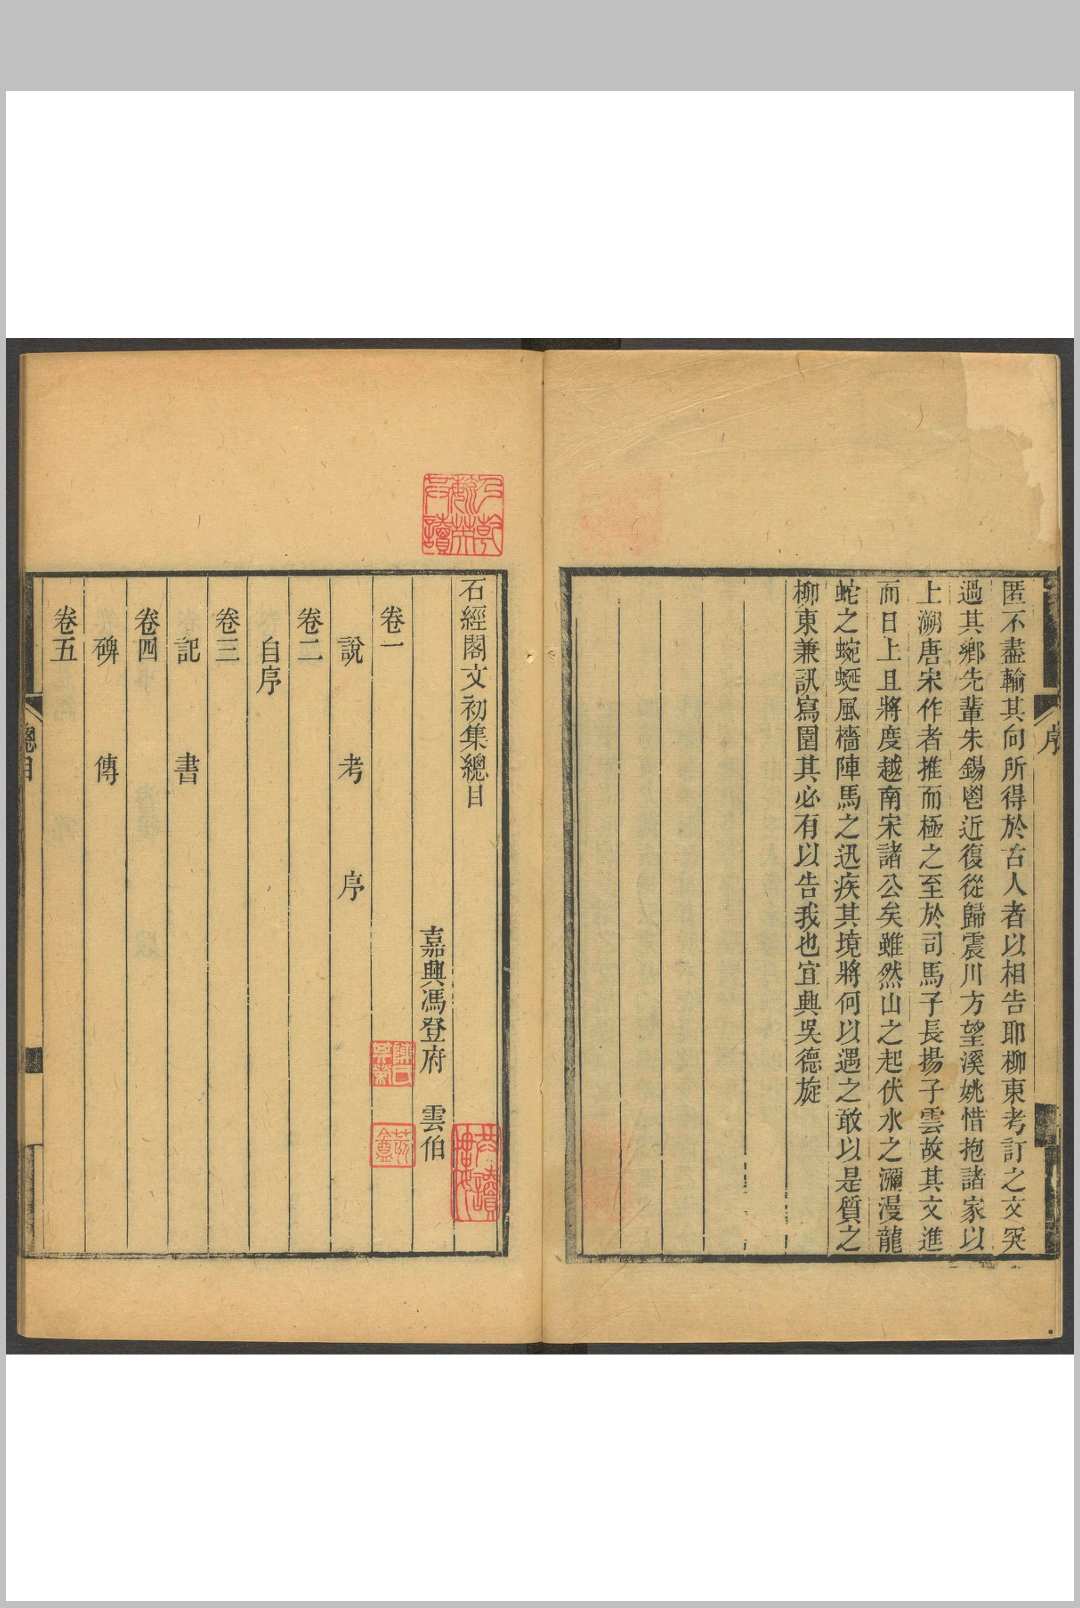 匿不盡輸其向所得於古人者以相告耶柳東考訂之文突
過其鄉先輩朱錫鬯近復從歸震川方望溪姚惜抱諸家以
上溯唐宋作者推而極之至於司馬子長揚子雲故其文進
而日上且將度越南宋諸公矣雖然山之起伏水之瀰漫龍
蛇之蜿蜒風檣陣馬之迅疾其境將何以遇之敢以是質之
柳東兼訊寫圍其必有以告我也宜興吳德旋
序
石經閣文初集總目
嘉興馮登府 雲伯
卷一
說 考 序
卷二
自序
卷三
記 書
卷四
碑 傳
卷五
總目